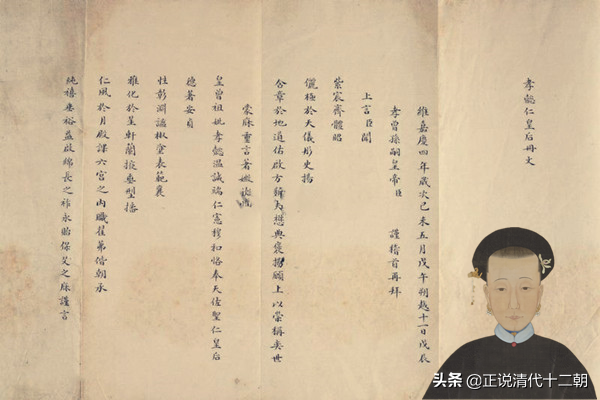 孝懿仁皇后冊文
維嘉慶四年歲次己未五月戊午朔越十一日戊辰
孝曾孫嗣皇帝臣 謹稽首再拜
上言臣聞
紫宸齊體昭
儷極於天儀彤史揚
含章於地道佑啟方 大懋典襃揚願上以崇稱奕世
蒙庥靈言著徽
皇曾祖妣孝懿溫誠端仁憲穆和恪奉天佐聖仁皇后
德著安貞
性彰淵謐椒壼表範襄
雅化於星軒蘭掖垂型播
仁風於月殿課六宮之內職 第偕朝承
純禧垂裕益啟綿長之祚永貽保乂之庥謹言
头条 @正说清代十二朝